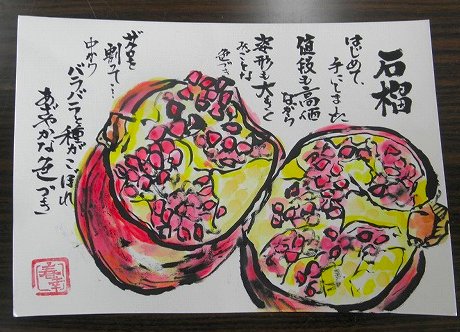 石榴
はじめて、
手にしました
値段も高価
ながら
姿形も大きく
みごとな
色づき
ザクロを
割って…
中から
バラバラと種がこぼれ
あざやかな色づき